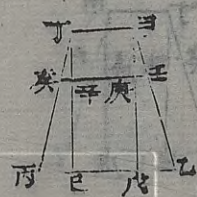 丁 甲
癸 辛 庚 壬
丙 己 戊 乙